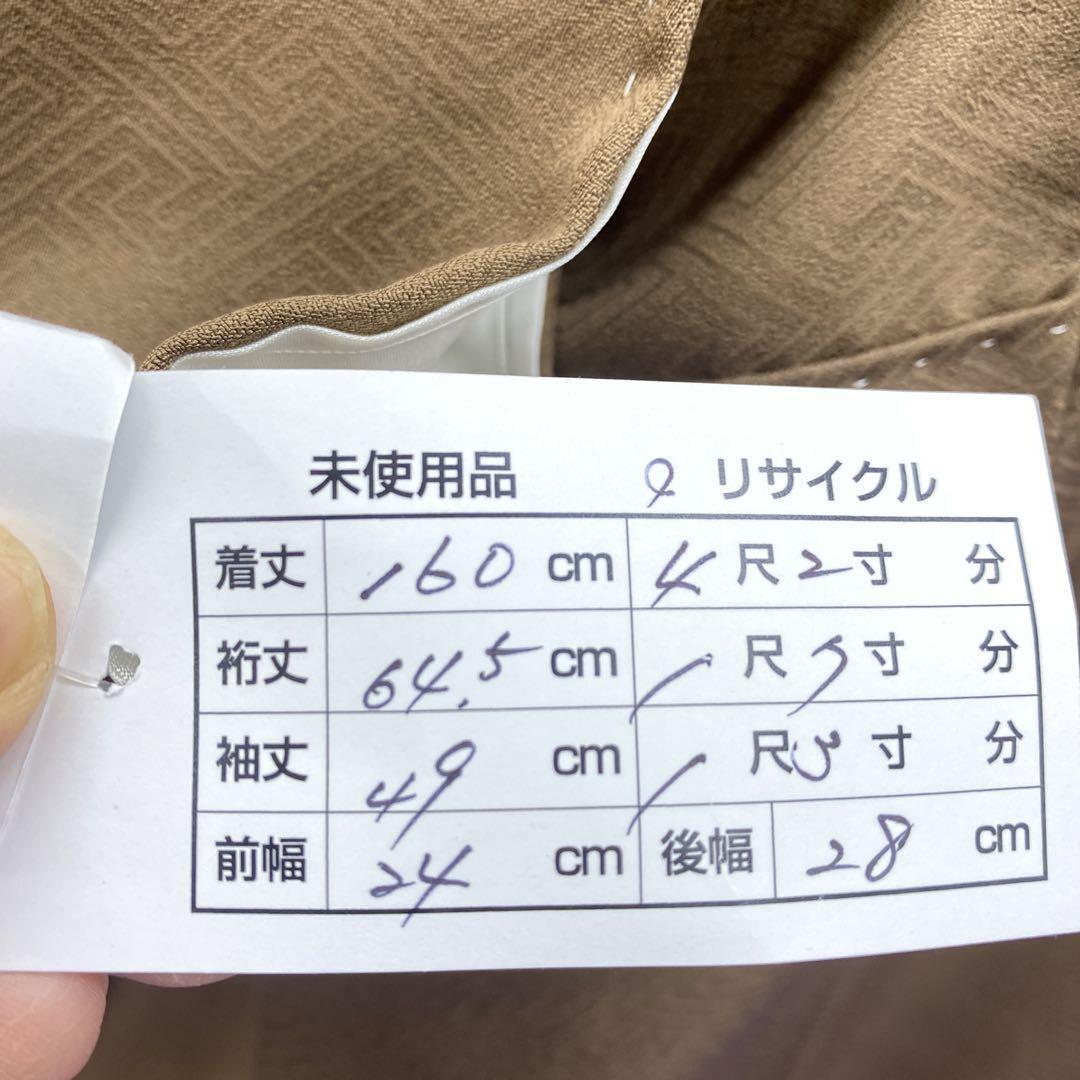 未使用品 リサイクル
着丈 160 cm 4尺2寸 分
裄丈 64.5 cm 1尺7寸 分
袖丈 49 cm 1尺3寸 分
前幅 24 cm 後幅 28 cm